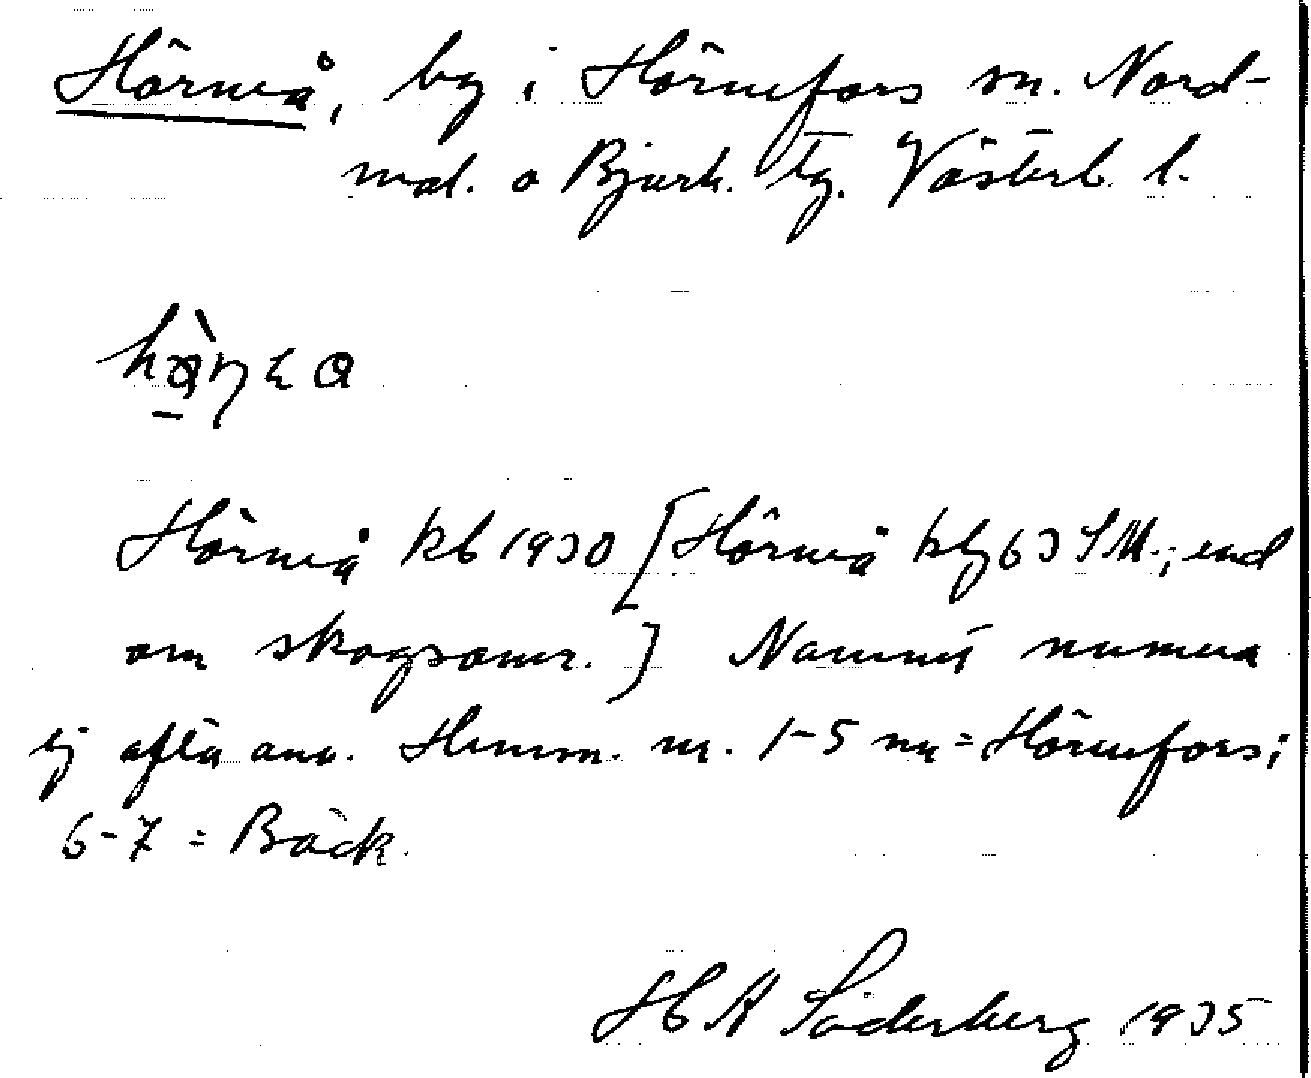 Hörneå, by i Hörnefors sn. Nord-
mal. o Bjurh. tg. Västerb. l.
Hörneå kb 1930 [Hörneå kbg 63 SM.; end
om skogsomr.] Namnet numera
ej ofta anv. Hemm. nr. 1-5 nu = Hörnefors;
6-7 = Bäck.
H A Söderberg 1935